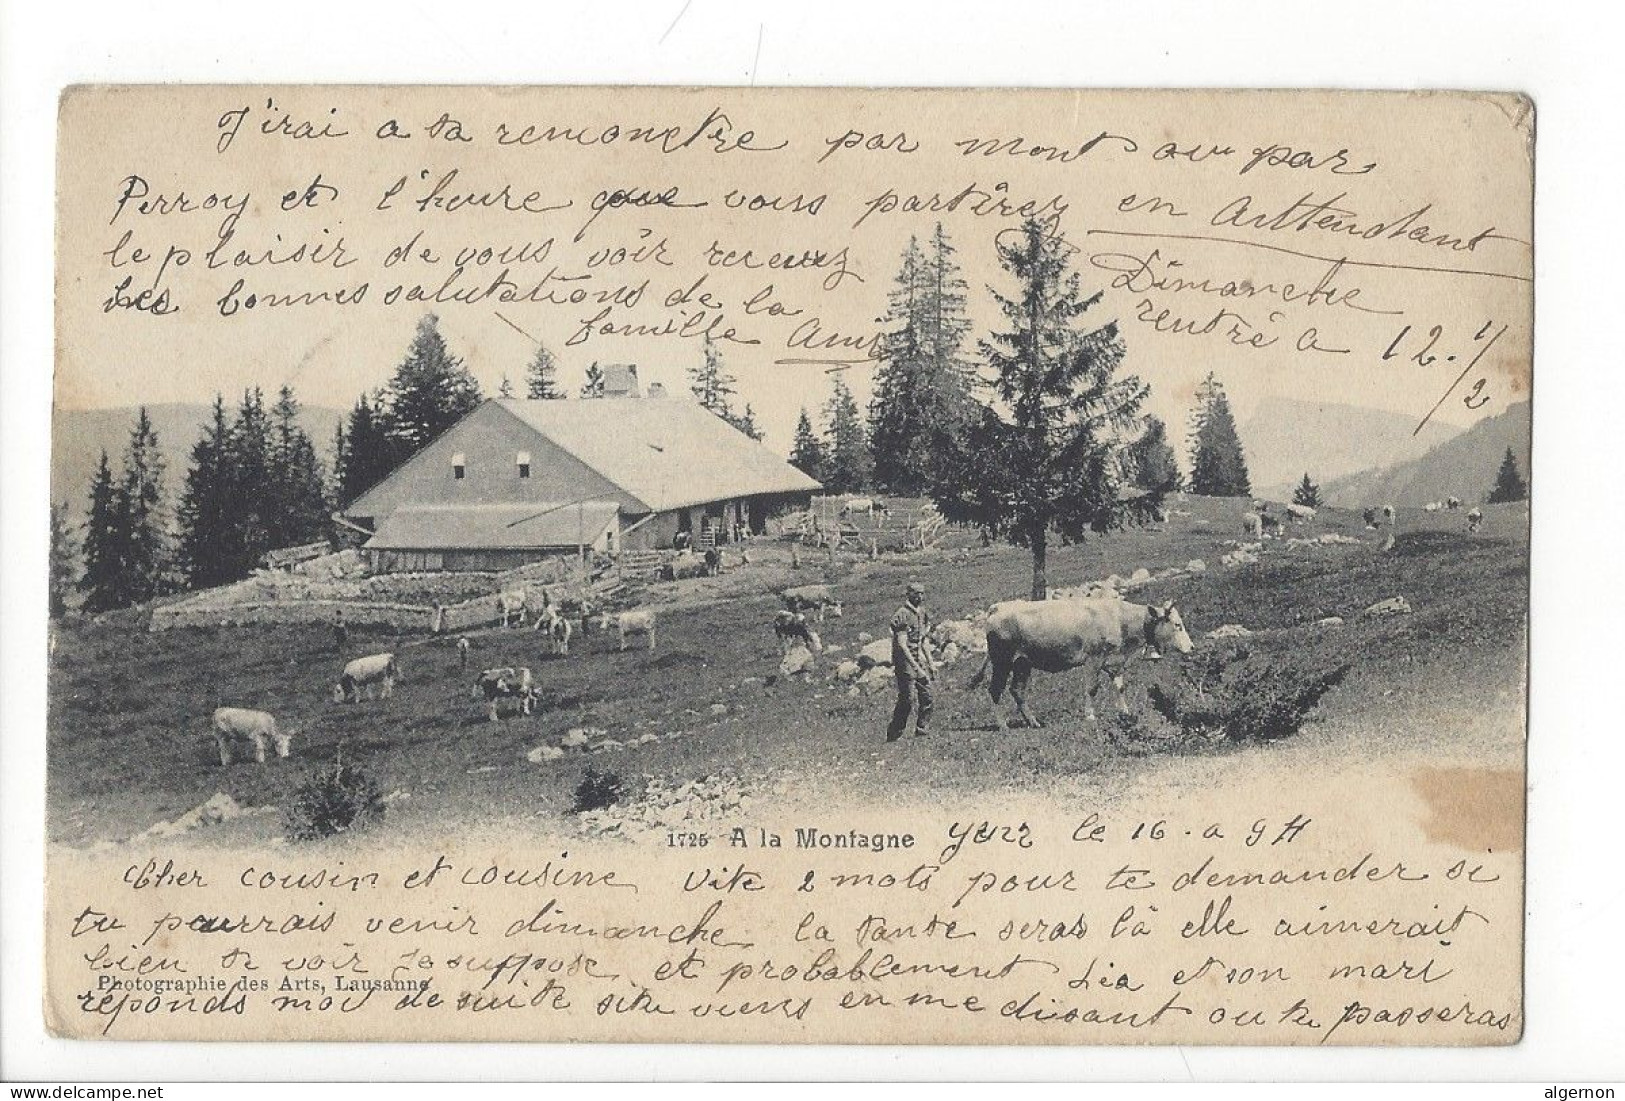 J'irai a ta remconctre par mont ou par
Perroy et l'heure que vous partîrez en Attendant
le plaisir de vous voir recevez
les bonnes salutations de la
famille Ami
Dîmanche
rentré a 12.1/2
1725 A la Montagne
le 16 - a 9 H
Cher cousin et cousine vite 2 mots pour te demander si
tu pourrais venir dimanche la tante seras là elle aimerait
bien te voir Ja suppose et probablement Léa et son mari
Photographie des Arts, Lausanne
réponds moi de suite si tu viens en me disant ou tu passeras
delcampe.net
algernon